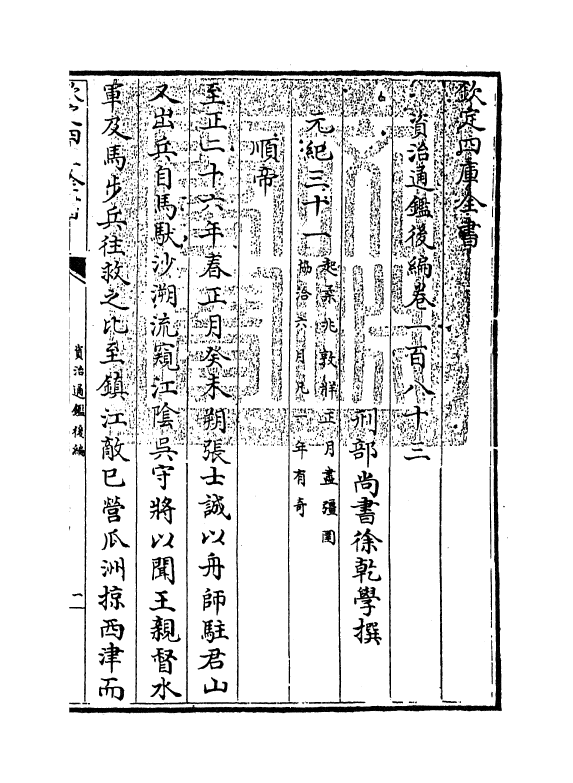 欽定四庫全書
資治通鑑後編卷一百八十三
刑部尚書徐乾學撰
元紀三十一
起柔兆敦牂正月盡彊圉
協洽六月凡一年有奇
順帝
至正二十六年春正月癸未朔張士誠以舟師駐君山
又出兵自馬馱沙溯流窺江陰吳守將以聞王親督水
軍及馬步兵往救之比至鎮江敵已營瓜洲掠西津而
資治通鑑後編